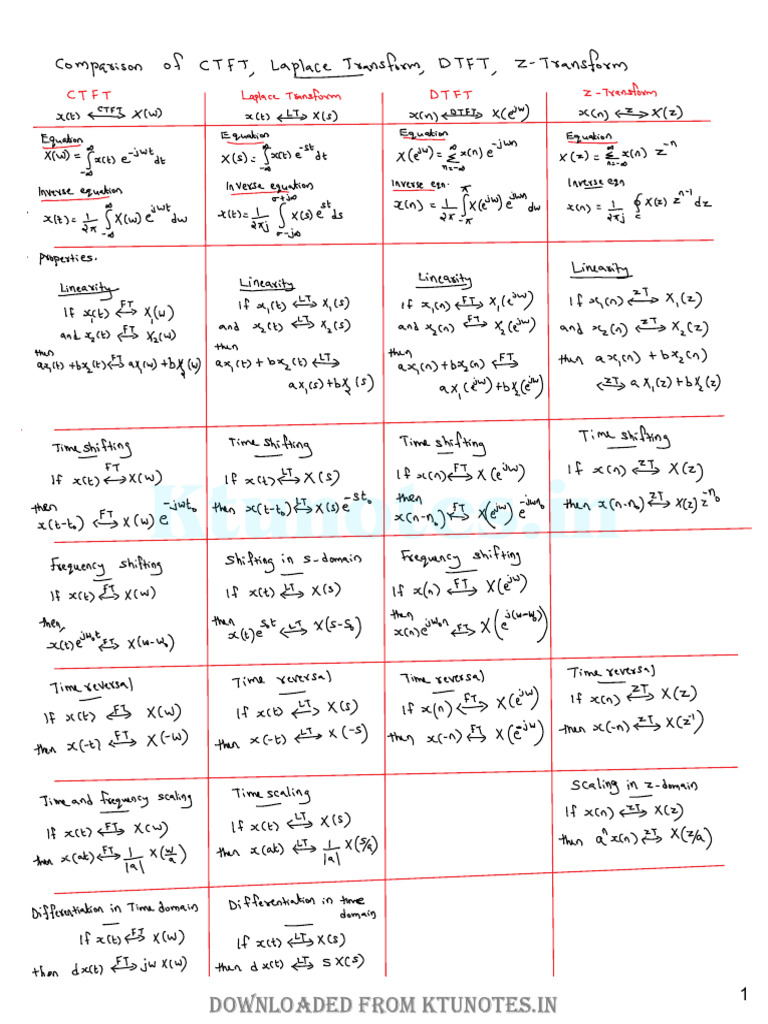 Comparison of CTFT, Laplace Transform, DTFT, Z-Transform
CTFT
x(t) ⟷CTFT X(w)
Equation
X(w) = ∫_{-∞}^{∞} x(t) e^{-jwt} dt
Inverse equation
x(t) = 1/2π ∫_{-∞}^{∞} X(w) e^{jwt} dw
Laplace Transform
x(t) ⟷LT X(s)
Equation
X(s) = ∫_{-∞}^{∞} x(t) e^{-st} dt
Inverse equation
x(t) = 1/2πj ∫_{σ-j∞}^{σ+j∞} X(s) e^{st} ds
DTFT
x(n) ⟷DTFT X(e^{jw})
Equation
X(e^{jw}) = Σ_{n=-∞}^{∞} x(n) e^{-jwn}
Inverse eqn.
x(n) = 1/2π ∫_{-π}^{π} X(e^{jw}) e^{jwn} dw
Z-Transform
x(n) ⟷Z X(z)
Equation
X(z) = Σ_{n=-∞}^{∞} x(n) z^{-n}
Inverse eqn
x(n) = 1/2πj ∮_c X(z) z^{n-1} dz
Properties.
Linearity
If x₁(t) ⟷FT X₁(w)
and x₂(t) ⟷FT X₂(w)
then
ax₁(t) + bx₂(t) ⟷FT aX₁(w) + bX₂(w)
Linearity
If x₁(t) ⟷LT X₁(s)
and x₂(t) ⟷LT X₂(s)
then
ax₁(t) + bx₂(t) ⟷LT
aX₁(s) + bX₂(s)
Linearity
If x₁(n) ⟷FT X₁(e^{jw})
and x₂(n) ⟷FT X₂(e^{jw})
then
ax₁(n) + bx₂(n) ⟷FT
aX₁(e^{jw}) + bX₂(e^{jw})
Linearity
If x₁(n) ⟷ZT X₁(z)
and x₂(n) ⟷ZT X₂(z)
then ax₁(n) + bx₂(n)
⟷ZT aX₁(z) + bX₂(z)
Time shifting
If x(t) ⟷FT X(w)
then
x(t-t₀) ⟷FT X(w) e^{-jwt₀}
Time shifting
If x(t) ⟷LT X(s)
then x(t-t₀) ⟷LT X(s) e^{-st₀}
Time shifting
If x(n) ⟷FT X(e^{jw})
then
x(n-n₀) ⟷FT X(e^{jw}) e^{-jwn₀}
Time shifting
If x(n) ⟷ZT X(z)
then x(n-n₀) ⟷ZT X(z) z^{-n₀}
Ktunotes.in
Frequency shifting
If x(t) ⟷FT X(w)
then,
x(t) e^{jw₀t} ⟷FT X(w-w₀)
Shifting in s-domain
If x(t) ⟷LT X(s)
then
x(t) e^{s₀t} ⟷LT X(s-s₀)
Frequency shifting
If x(n) ⟷FT X(e^{jw})
then
x(n) e^{jw₀n} ⟷FT X(e^{j(w-w₀)})
Time reversal
If x(t) ⟷FT X(w)
then x(-t) ⟷FT X(-w)
Time reversal
If x(t) ⟷LT X(s)
then x(-t) ⟷LT X(-s)
Time reversal
If x(n) ⟷FT X(e^{jw})
then x(-n) ⟷FT X(e^{-jw})
Time reversal
If x(n) ⟷ZT X(z)
then x(-n) ⟷ZT X(z^{-1})
Time and frequency scaling
If x(t) ⟷FT X(w)
then x(at) ⟷FT 1/|a| X(w/a)
Time scaling
If x(t) ⟷LT X(s)
then x(at) ⟷LT 1/|a| X(s/a)
Scaling in z-domain
If x(n) ⟷ZT X(z)
then aⁿx(n) ⟷ZT X(z/a)
Differentiation in Time domain
If x(t) ⟷FT X(w)
then dx(t) ⟷FT jw X(w)
Differentiation in time
domain
If x(t) ⟷LT X(s)
then dx(t) ⟷LT sX(s)
1
DOWNLOADED FROM KTUNOTES.IN